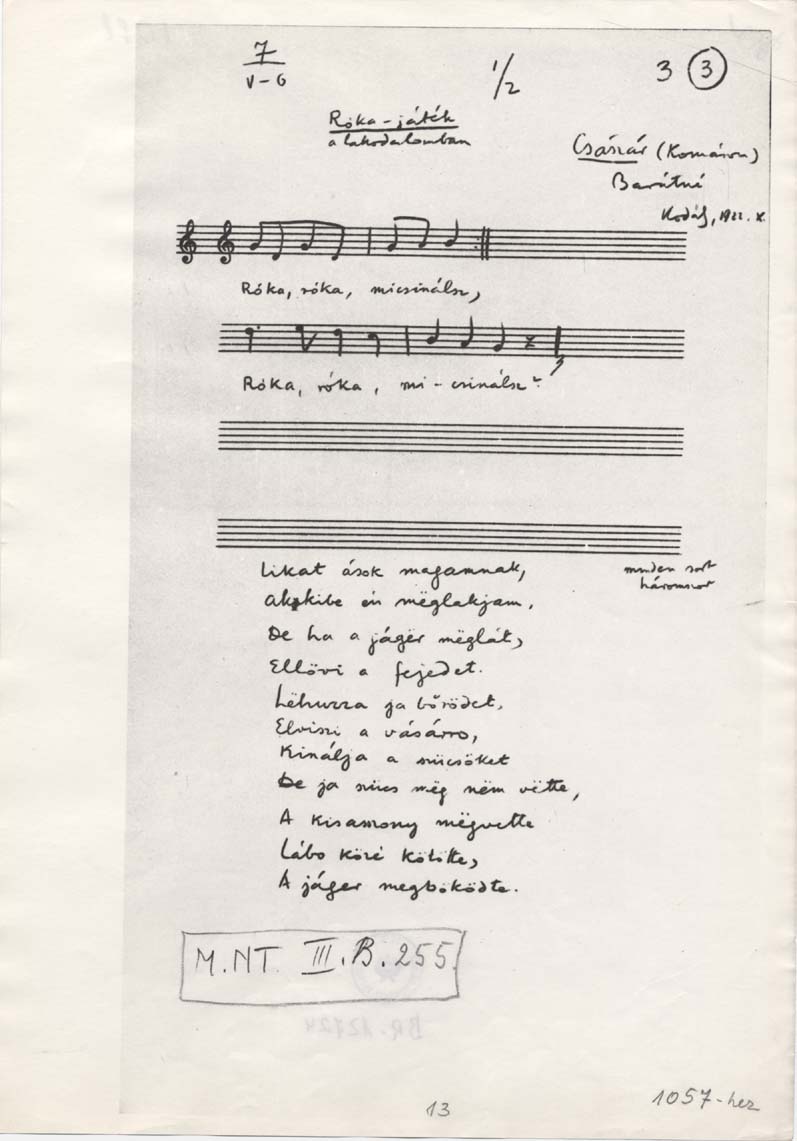 7
V–G
1/2
3 3
Róka-játék
a lakodalomban
Császár (Komárom)
Barátné
Kodály, 1922. X.
Róka, róka, micsinálsz,
Róka, róka, mi-csinálsz?
minden sort
háromszor
Likat ások magamnak,
akibe én mëglakjam.
De ha a jágër mëglát,
Ellövi a fejedet.
Lëhuzza ja bőrödet,
Elviszi a vásárro,
Kinálja a szücsöket
De ja szücs mëg nëm vëtte,
A kisasszony mëgvette
Lábo közé kötötte,
A jáger megbökődte.
M.NT. III.B.255.
BR.12724
13
1057-hez